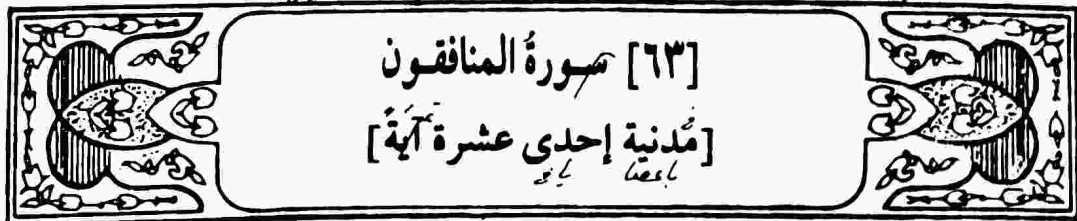 [٦٣] سورةُ المنافقون
[مَدنية إحدى عشرة آيَةً]